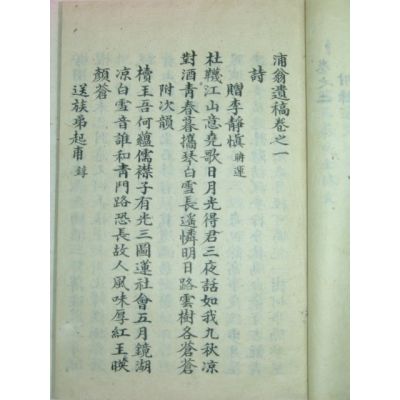 浦翁遺稿卷之一
詩
贈李靜愼 將運
杜韈江山意堯歌日月光得君三夜話如我九秋凉
對酒青春暮攜琴白雪長遙憐明日路雲樹各蒼蒼
附次韻
櫝玉吾何蘊儒襟子有光三圖蓮社會五月鏡湖
凉白雪音誰和青門路恐長故人風味厚紅玉暎
顏蒼
送族弟起甫